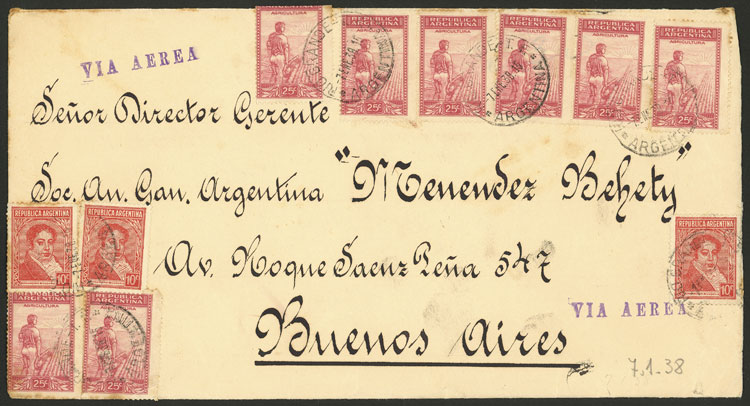 VIA AEREA
AGRICULTURA
25c
REPUBLICA ARGENTINA
AGRICULTURA
25c
REPUBLICA ARGENTINA
AGRICULTURA
25c
REPUBLICA ARGENTINA
AGRICULTURA
25c
REPUBLICA ARGENTINA
AGRICULTURA
25c
REPUBLICA ARGENTINA
AGRICULTURA
25c
ARGENTINA
Señor Director Gerente
Soc. An. Gan. Argentina "Menendez Behety"
Av. Roque Saenz Peña 547
Buenos Aires
REPUBLICA ARGENTINA
10c
REPUBLICA ARGENTINA
10c
REPUBLICA ARGENTINA
10c
REPUBLICA ARGENTINA
AGRICULTURA
25c
REPUBLICA ARGENTINA
AGRICULTURA
25c
VIA AEREA
7.1-38